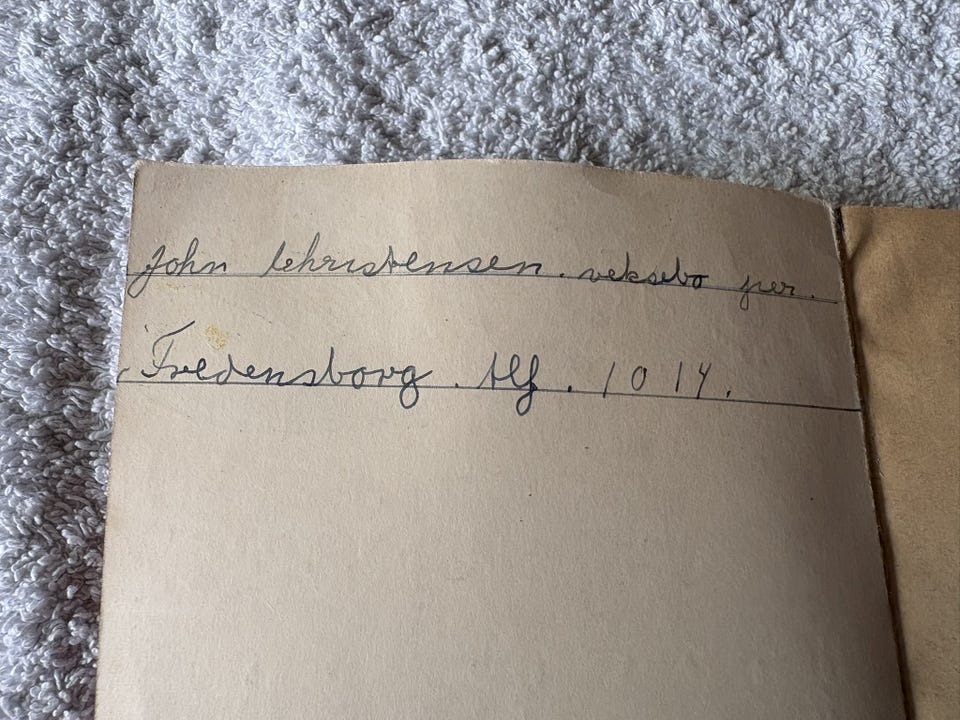 John Christensen. veksebo per.
Fredensborg. tlf. 1014.